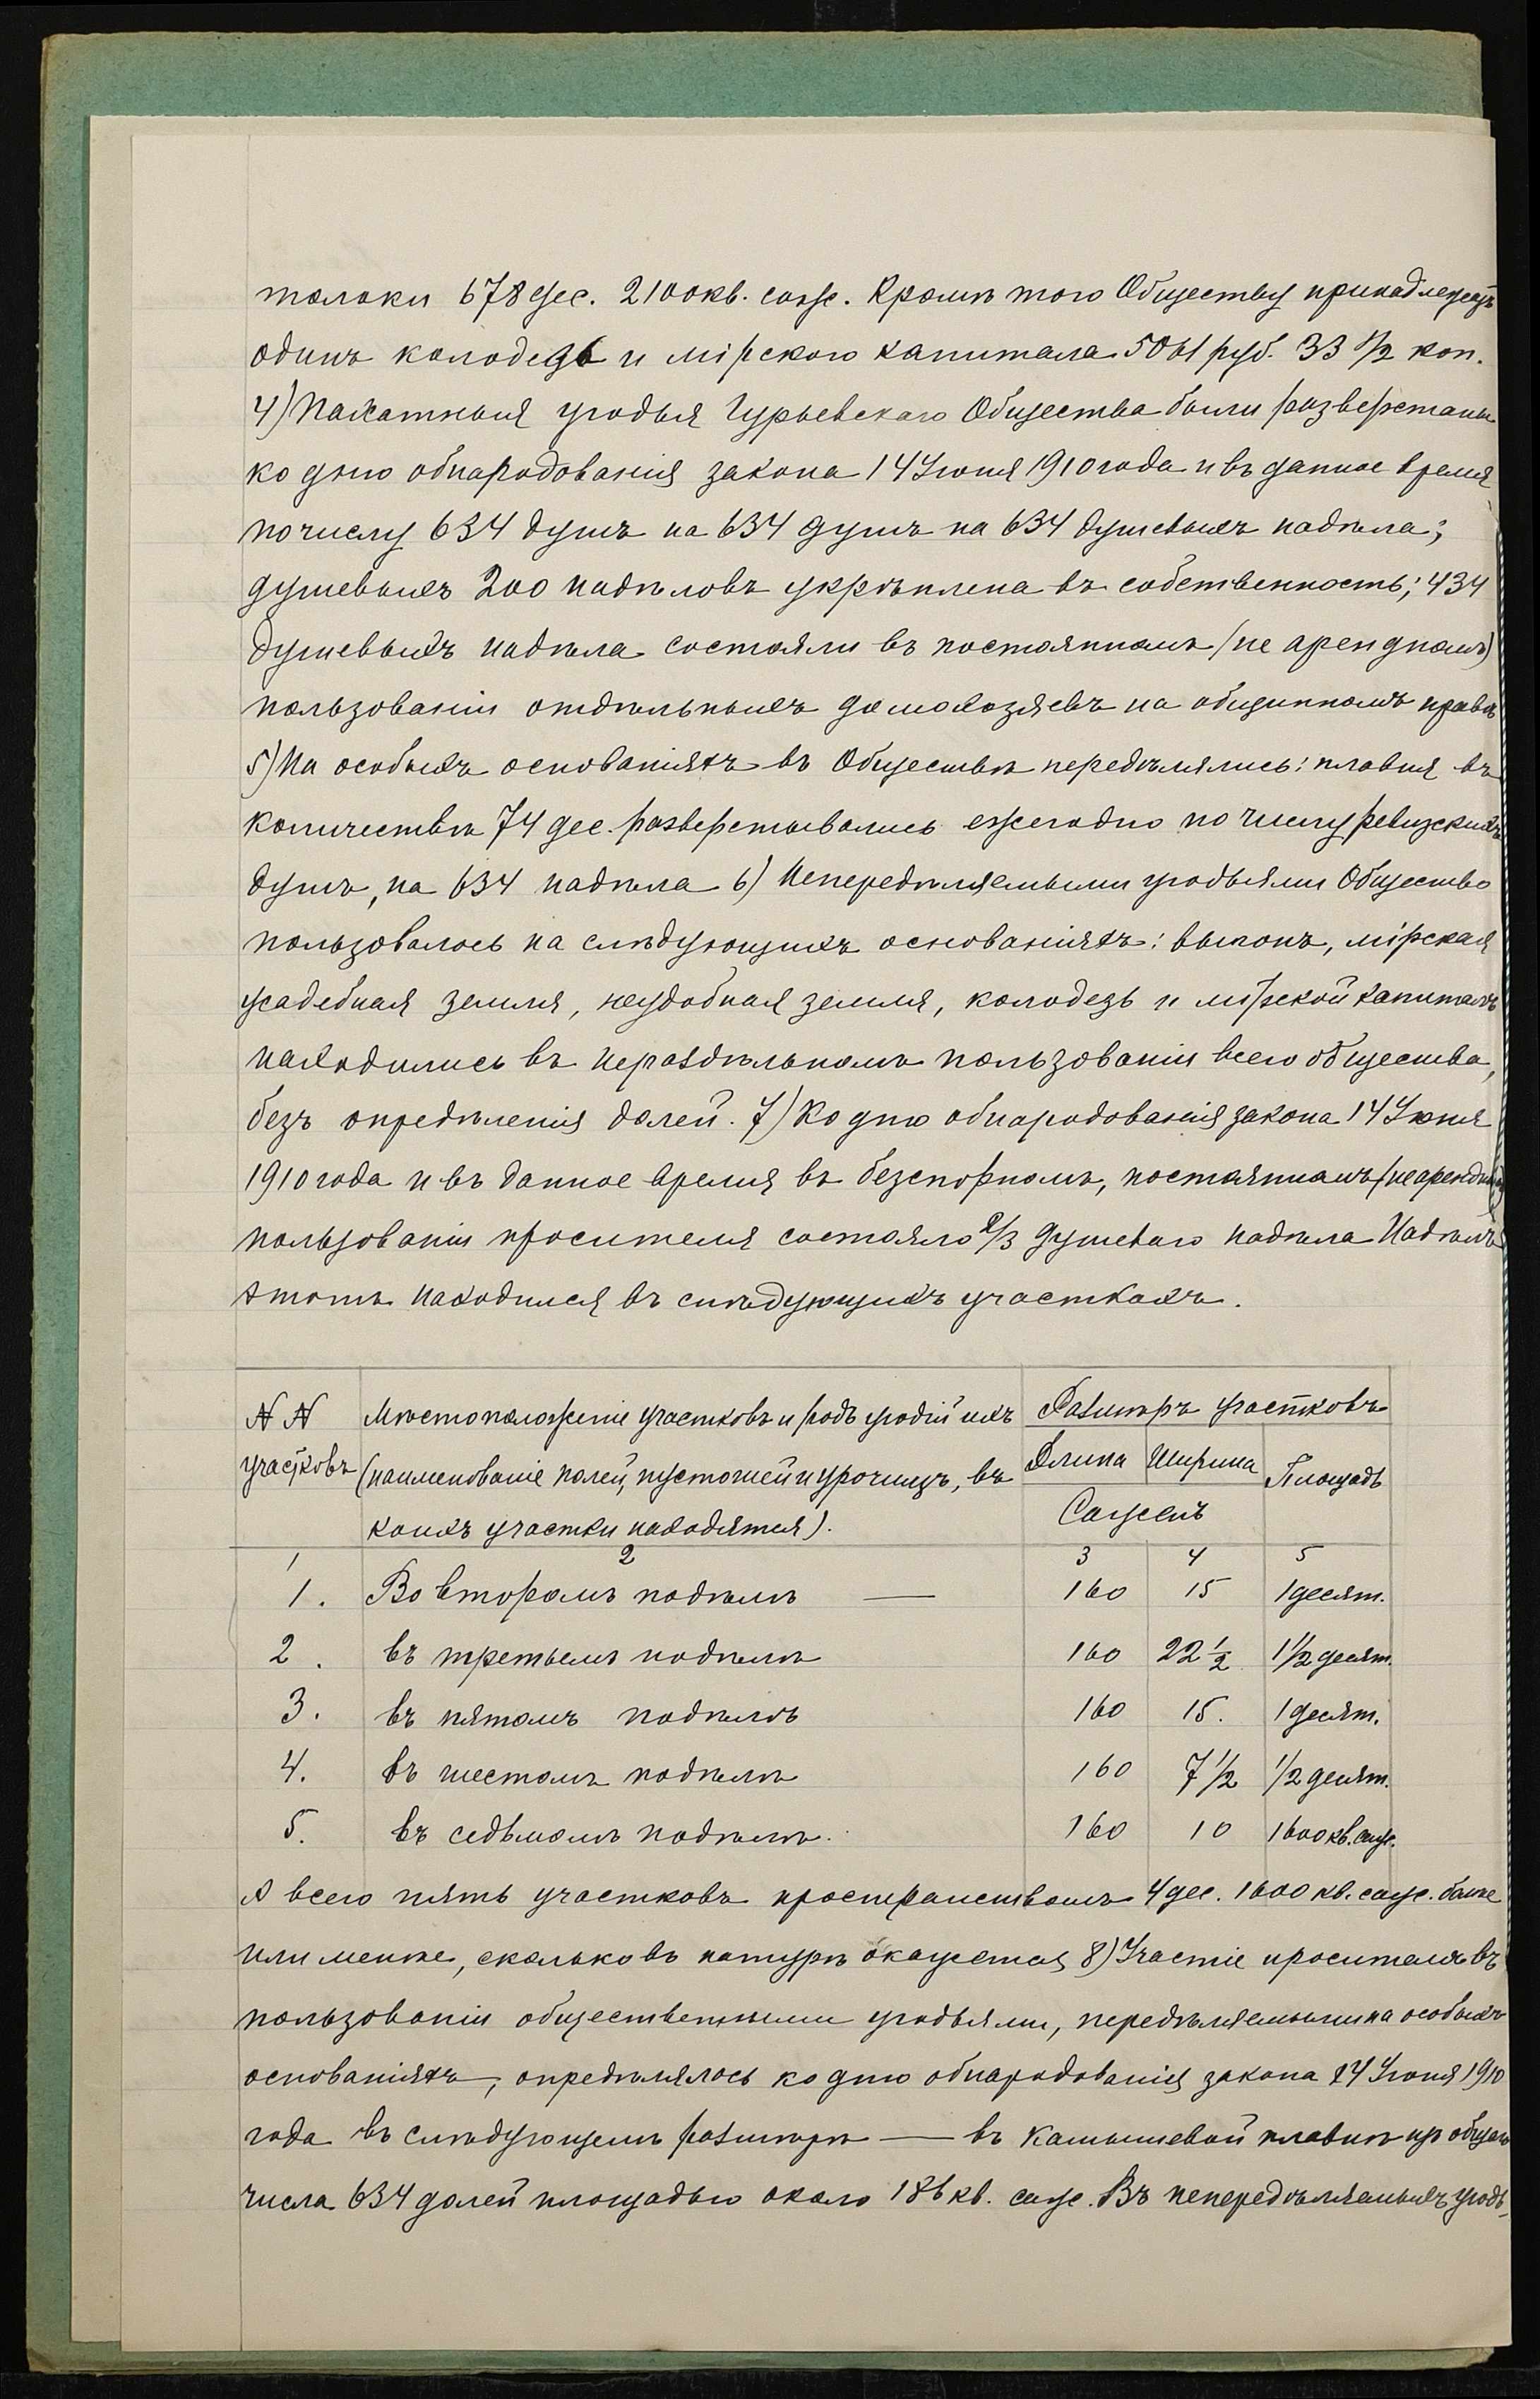 толоки 678 дес. 2100 кв. саж. Кромѣ того Обществу принадлежатъ
одинъ колодезь и мірского капитала 5061 руб. 33 1/2 коп.
4) Пахатныя угодья Гурьевскаго Общества были разверстаны
ко дню обнародованія закона 14 Іюня 1910 года и въ данное время
по числу 634 душъ на 634 душъ на 634 душевыхъ надѣла;
душевыхъ 200 надѣловъ укрѣплена въ собственность; 434
душевыхъ надѣла состояли въ постоянномъ (не арендномъ)
пользованіи отдѣльныхъ домохозяевъ на общинномъ правѣ
5) На особыхъ основаніяхъ въ Обществѣ передѣлялись: плавня въ
количествѣ 74 дес. разверстывались ежегодно по числу ревизскихъ
душъ, на 634 надѣла 6) Непередѣляемыми угодьями Общество
пользовалось на слѣдующихъ основаніяхъ: выгонъ, мірская
усадебная земля, неудобная земля, колодезь и мірской капиталъ
находились въ нераздѣльномъ пользованіи всего общества,
безъ опредѣленія долей. 7) Ко дню обнародованія закона 14 Іюня
1910 года и въ данное время въ безспорномъ, постоянномъ (не арендномъ)
пользованіи просителя состояло 2/3 душеваго надѣла Надѣлъ
этотъ находился въ слѣдующихъ участкахъ.
№ № Мѣстоположеніе участковъ и родъ угодій ихъ Размѣръ участковъ
участковъ (наименованіе полей, пустошей и урочищъ, въ Длина Ширина Площадь
коихъ участки находятся). Сажень
1 2 3 4 5
1. Во второмъ подѣлѣ — 160 15 1 десят.
2. въ третьемъ подѣлѣ 160 22 1/2 1 1/2 десят.
3. въ пятомъ подѣлѣ 160 15. 1 десят.
4. въ шестомъ подѣлѣ 160 7 1/2 1/2 десят.
5. въ седьмомъ подѣлѣ. 160 10 1600 кв. саж.
А всего пять участковъ пространствомъ 4 дес. 1600 кв. саж. болѣе
или менѣе, сколько въ натурѣ окажется 8) Участіе просителя въ
пользованіи общественными угодьями, передѣляемыми на особыхъ
основаніяхъ, опредѣлялось ко дню обнародованія закона 14 Іюня 1910
года въ слѣдующемъ размѣрѣ — въ камышевой плавнѣ изъ общаго
числа 634 долей площадью около 186 кв. саж. Въ непередѣляемыхъ угодь-